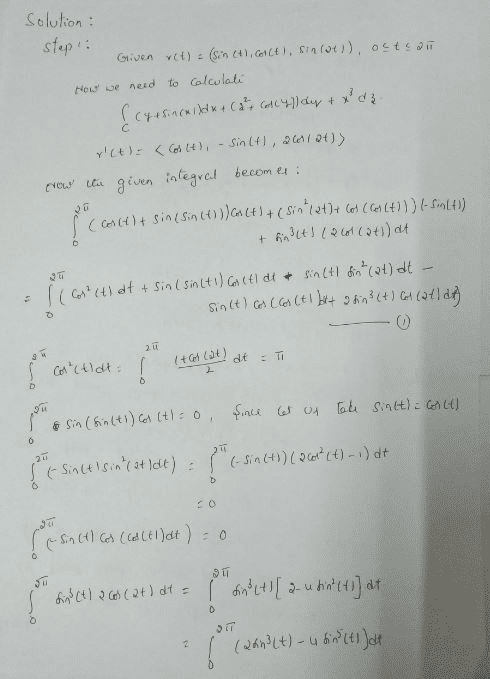 Solution :
step 1:
Given r(t) = (Sin(t), Cos(t), Sin(2t)), 0 ≤ t ≤ 2π
Now we need to Calculate
∫_C (y+Sin(x))dx + (z²+ Cos(y))dy + x³ dz.
r'(t) = < Cos(t), - Sin(t), 2Cos(2t)>
Now the given integral becomes :
∫_0^{2π} (Cos(t) + Sin(Sin(t)))Cos(t) + (Sin²(2t)+ Cos(Cos(t)))(-Sin(t))
+ Sin³(t) (2Cos(2t)) dt
= ∫_0^{2π} (Cos²(t) dt + Sin(Sin(t)) Cos(t) dt + Sin(t) Sin²(2t) dt -
Sin(t) Cos(Cos(t)) dt + 2Sin³(t) Cos(2t) dt)
— ①
∫_0^{2π} Cos²(t)dt = ∫_0^{2π} (1+Cos(2t))/2 dt = π
∫_0^{2π} Sin(Sin(t)) Cos(t) = 0, Since let us Take Sin(t) = Cos(t)
∫_0^{2π} (-Sin(t)Sin²(2t)dt) = ∫_0^{2π} (-Sin(t))(2Cos²(t)-1) dt
= 0
∫_0^{2π} (-Sin(t) Cos(Cos(t))dt) = 0
∫_0^{2π} Sin³(t) 2Cos(2t) dt = ∫_0^{2π} Sin³(t)[2-4Sin²(t)] dt
= ∫_0^{2π} (2Sin³(t) - 4Sin⁵(t))dt